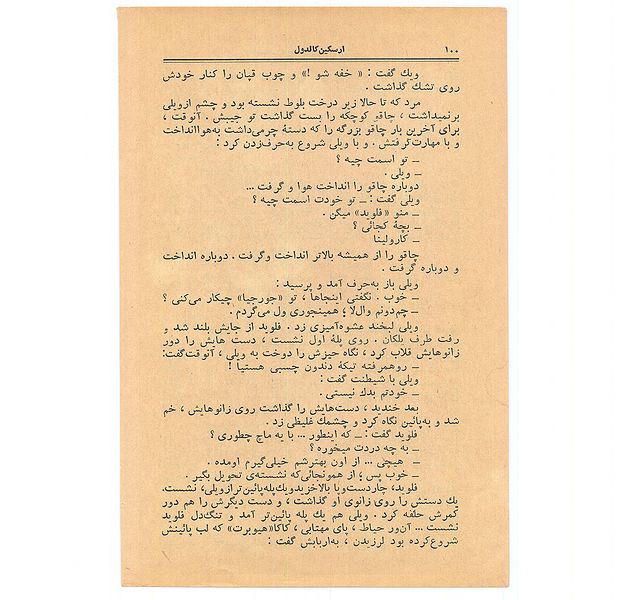 ۱۰۰
ارسکین کالدول
ویك گفت : « خفه شو !» و چوب قپان را کنار خودش
روی تشك گذاشت .
مرد که تا حالا زیر درخت بلوط نشسته بود و چشم ازویلی
برنمیداشت ، چاقو کوچکه را بست گذاشت تو جیبش . آنوقت ،
برای آخرین بار چاقو بزرگه را که دستهٔ چرمی‌داشت به‌هواانداخت
و با مهارت‌گرفتش . و با ویلی شروع به‌حرف‌زدن کرد :
ــ تو اسمت چیه ؟
ــ ویلی .
دوباره چاقو را انداخت هوا و گرفت ...
ویلی گفت : ــ تو خودت اسمت چیه ؟
ــ منو «فلوید» میگن .
ــ بچهٔ کجائی ؟
ــ کارولینا
چاقو را از همیشه بالاتر انداخت وگرفت . دوباره انداخت
و دوباره گرفت .
ویلی باز به‌حرف آمد و پرسید :
ــ خوب . نگفتی اینجاها ، تو «جورجیا» چیکار می‌کنی ؟
ــ چم‌دونم والا ؛ همینجوری ول می‌گردم .
ویلی لبخند عشوه‌آمیزی زد . فلوید از جایش بلند شد و
رفت طرف پلکان . روی پلهٔ اول نشست ، دست هایش را دور
زانوهایش قلاب کرد ، نگاه حیزش را دوخت به ویلی ، آنوقت‌گفت:
ــ روهمرفته تیکهٔ دندون چسبی هستیا !
ویلی با شیطنت گفت :
ــ خودتم بدك نیستی .
بعد خندید ، دست‌هایش را گذاشت روی زانوهایش ، خم
شد و به‌پائین نگاه کرد و چشمك غلیظی زد .
فلوید گفت : ــ که اینطور ... با یه ماچ چطوری ؟
ــ به چه دردت میخوره ؟
ــ هیچی ... از اون بهترشم خیلی‌گیرم اومده .
ــ خوب پس ؛ از همونجائی‌که نشسته‌ی تحویل بگیر .
فلوید، چاردست‌وپا بالاخزیدویك‌پله‌پائین‌ترازویلی، نشست.
یك دستش را روی زانوی او گذاشت ، و دست دیگرش را هم دور
کمرش حلقه کرد . ویلی هم یك پله پائین‌تر آمد و تنگ‌دل فلوید
نشست ... آن‌ور حیاط ، پای مهتابی ، کاکا«هیوبرت» که لب پائینش
شروع‌کرده بود لرزیدن ، به‌اربابش گفت :